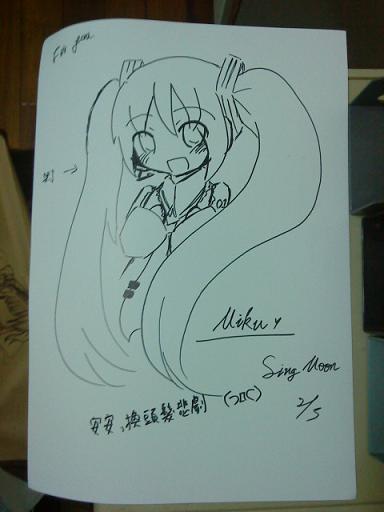 For you
01
Miku
Sing Moon
安安、換頭髮悲劇 (つロC)
2/5